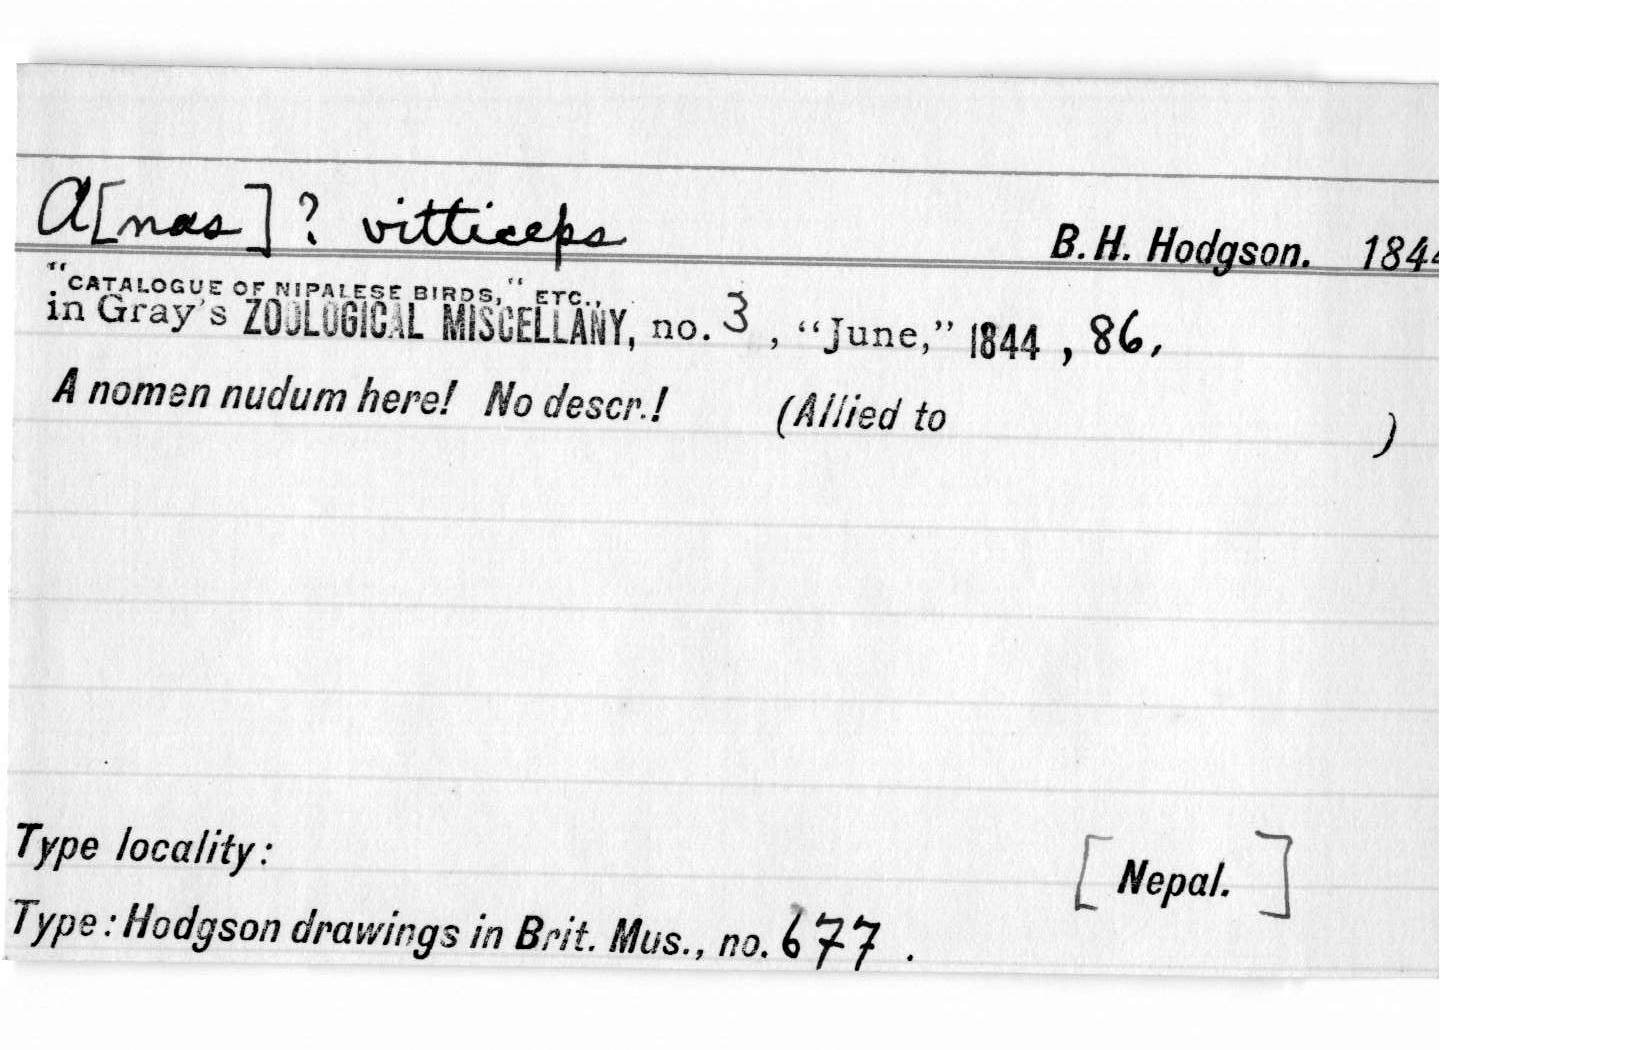 A[nas]? vitticeps B.H. Hodgson. 1844
"CATALOGUE OF NIPALESE BIRDS," ETC.,
in Gray's ZOOLOGICAL MISCELLANY, no. 3, "June," 1844, 86,
A nomen nudum here! No descr.! (Allied to )
Type locality: [Nepal.]
Type: Hodgson drawings in Brit. Mus., no. 677.